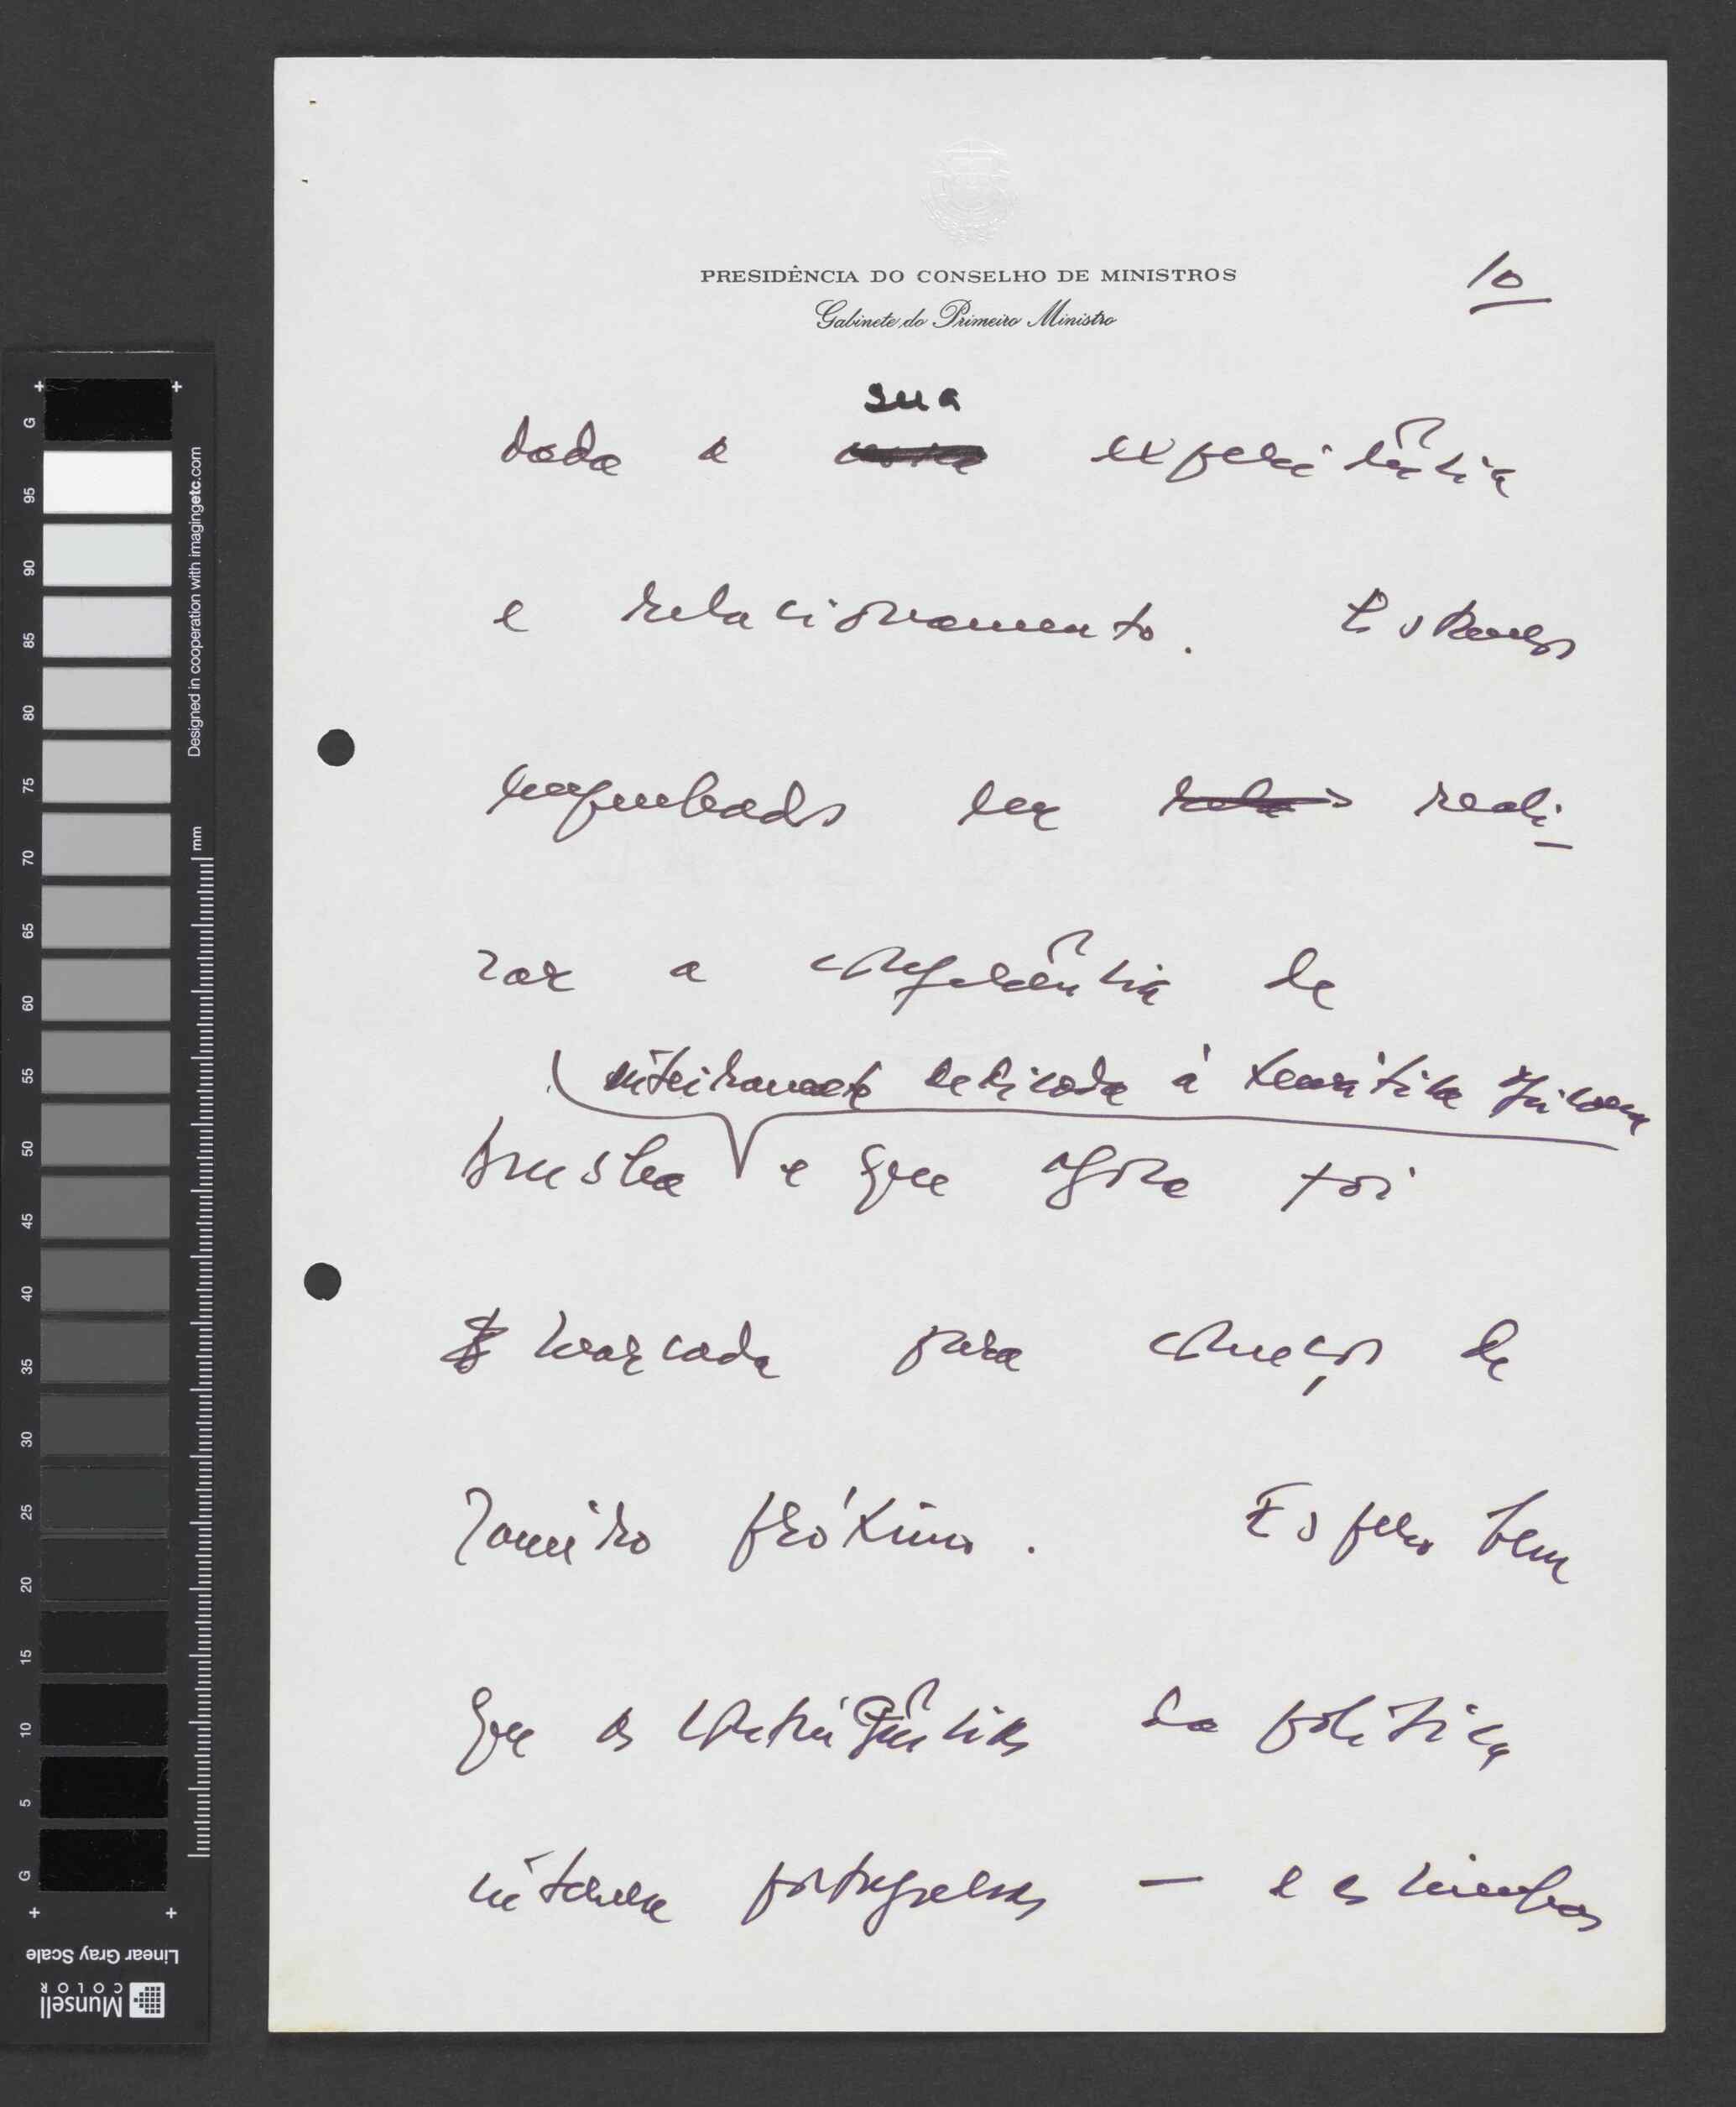 PRESIDÊNCIA DO CONSELHO DE MINISTROS
Gabinete do Primeiro Ministro
10
sua
dada a experiência
e relacionamento. Estamos
empenhados em reali-
zar a conferência de
inteiramente dedicada à temática africana
Bruxelas e que agora foi
marcada para começo de
Janeiro próximo. Espero bem
que as contingências da política
interna portuguesa — e as
G
95
90
85
80
75
70
65
60
55
50
45
40
35
30
25
20
15
10
5
G
mm
Designed in cooperation with imagingetc.com
Linear Gray Scale
Munsell
COLOR